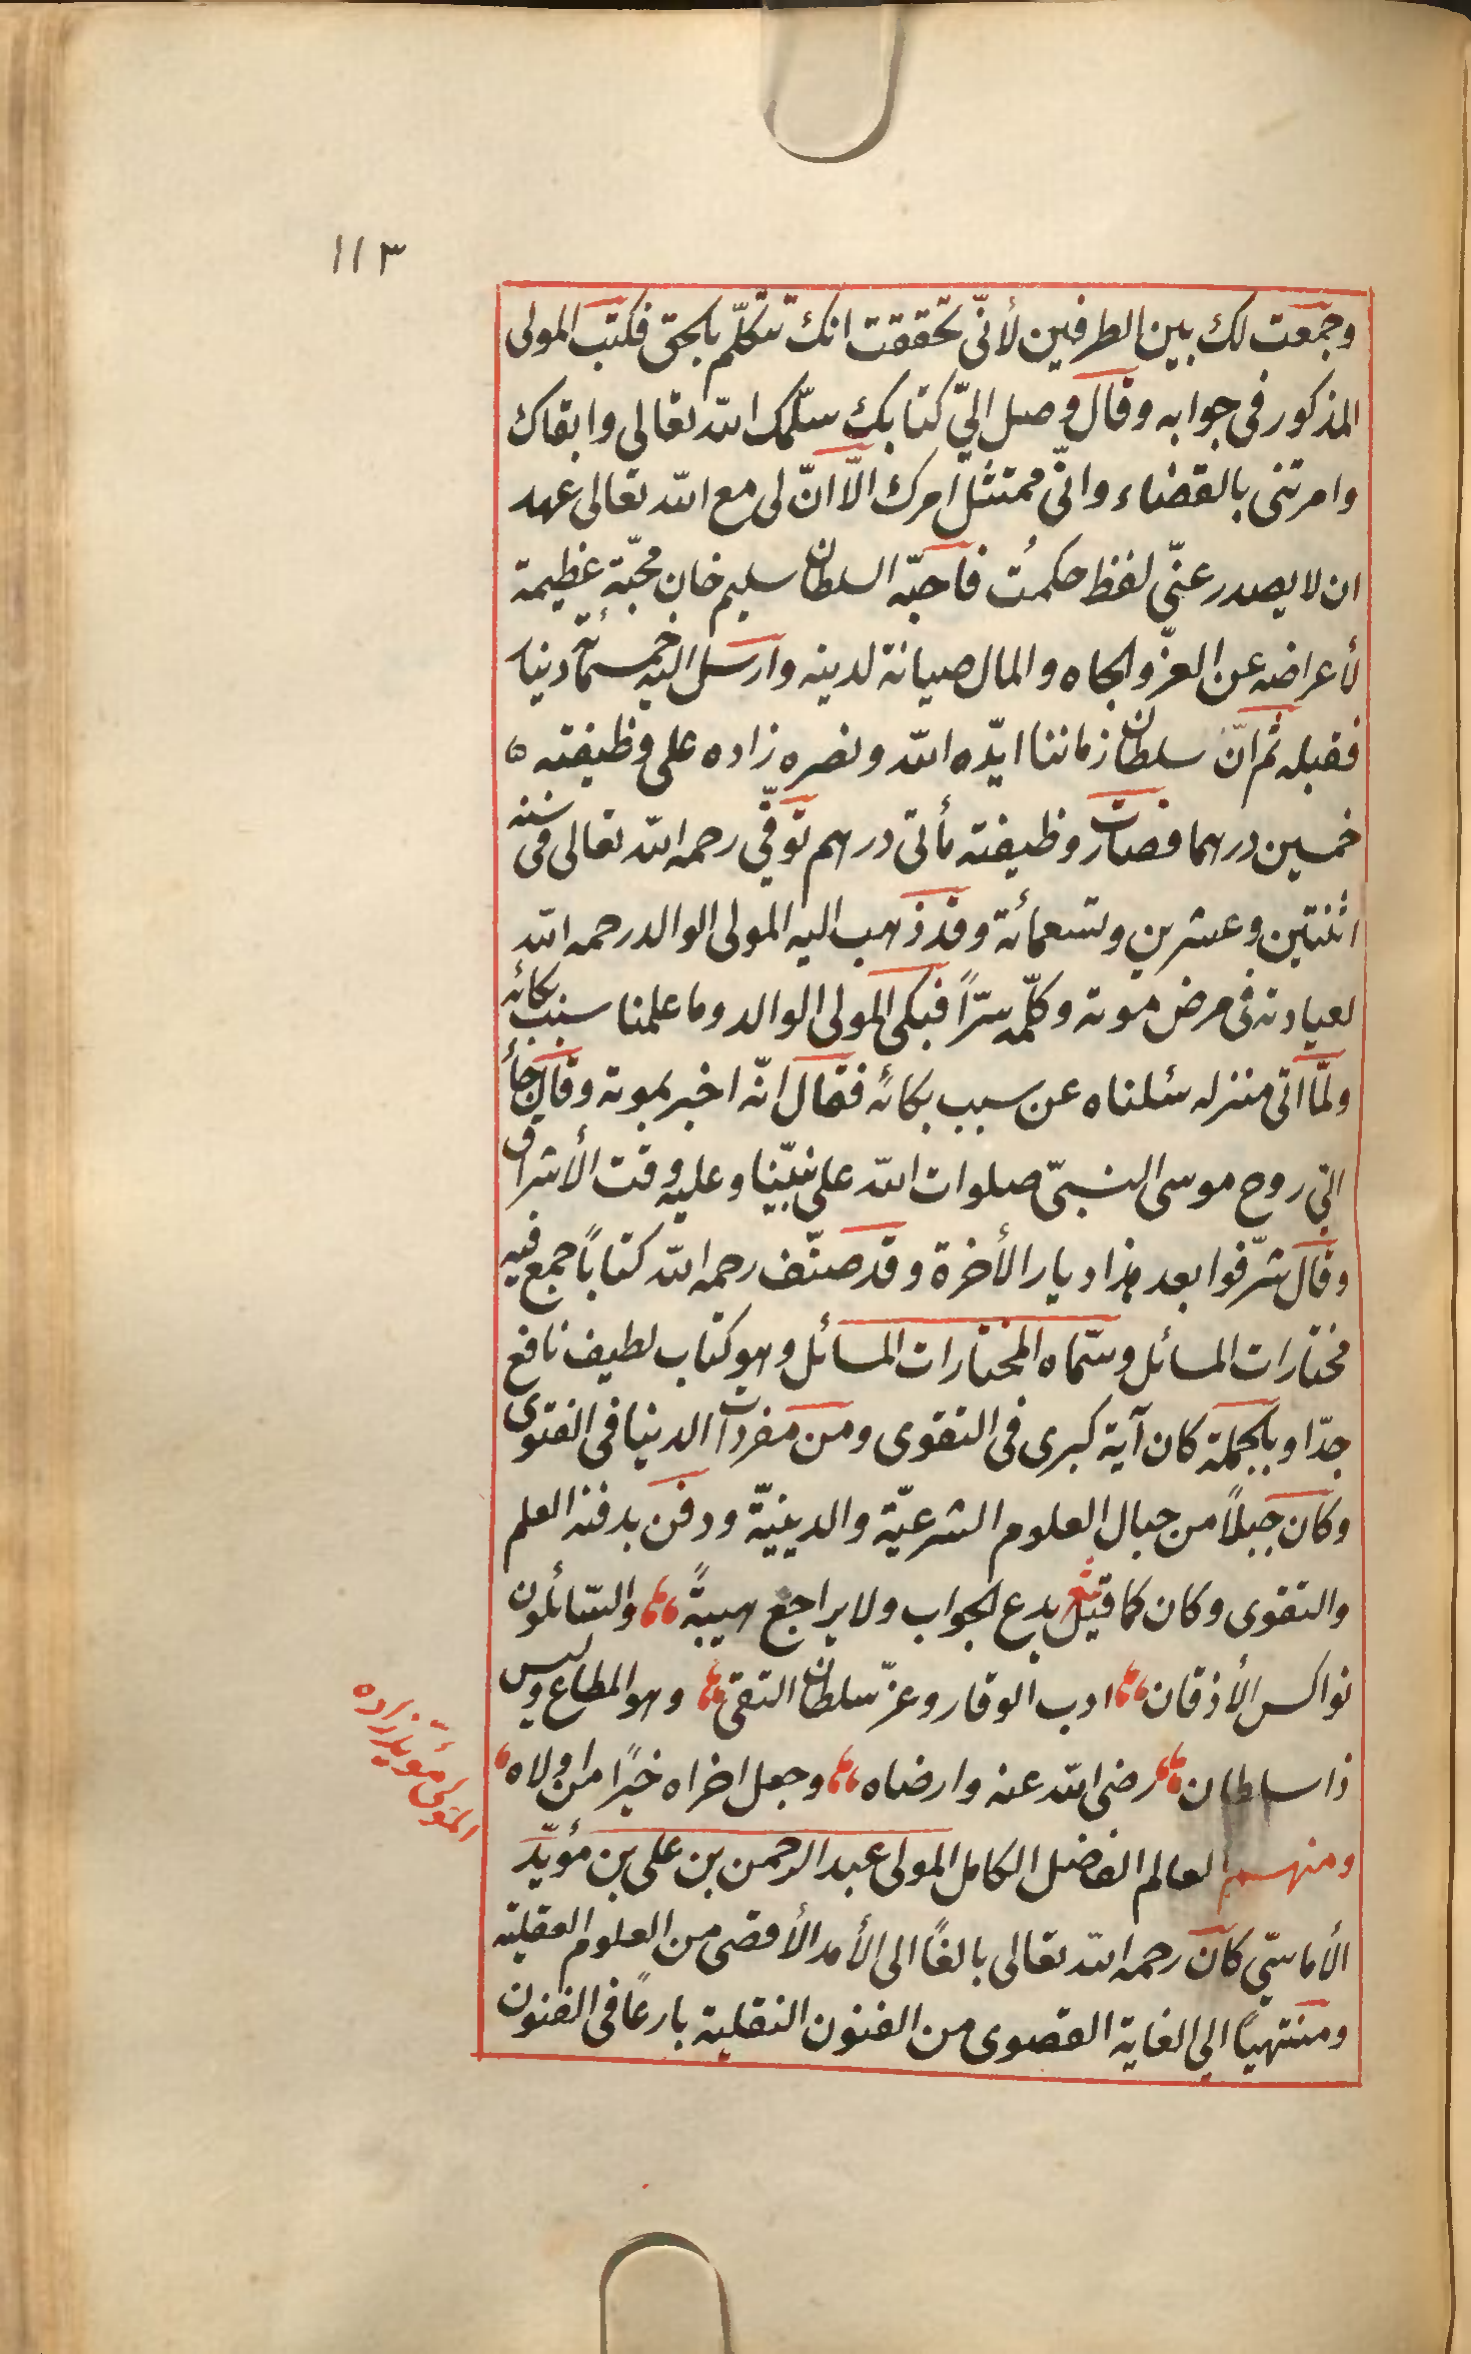 ١١٣
وجمعت لك بين الطرفين لأنّي تحققت انك تتكلّم بالحق فكتب المولى
المذكور في جوابه وقال وصل اليّ كتابك سلّمك الله تعالى وابقاك
وامرتنى بالقضاء وانّي ممتثل امرك الّا انّ لى مع الله تعالى عهد
ان لا يصدر عنّي لفظ حكمتُ فاحبّه السلطان سليم خان محبّة عظيمة
لأعراضه عن العزّ والجاه والمال صيانة لدينه وارسل اليه خمسمأئة دينار
فقبله ثم انّ سلطان زماننا ايّده الله ونصره زاده على وظيفته ه
خمسين درهما فصارت وظيفته مأتى درهم توفّي رحمه الله تعالى في سنه
اثنتين وعشرين وتسعمأئة وقد ذهب اليه المولى الوالد رحمه الله
لعيادته في مرض موته وكلّمه سرّاً فبكى المولى الوالد وما علمنا سبب بكائه
ولمّا اتى منزله سئلناه عن سبب بكائه فقال انّه اخبر بموته وقال جأ
الّي روح موسى النبيّ صلوات الله على نبيّنا وعليه وقت الأشراق
وقال شرّفوا بعد هذا ديار الأخرة وقد صنّف رحمه الله كتاباً جمع فيه
مختارات المسائل وسمّاه المختارات المسائل وهو كتاب لطيف نافع
جدّا وبالجملة كان آية كبرى في التقوى ومن مفردات الدنيا في الفتوى
وكان جبلاً من جبال العلوم الشرعيّة والدينيّة ودفن بدفنه العلم
والتقوى وكان كما قيل شعر يدع الجواب ولا يراجع هيبةً والسّائلون
نواكس الأذقان ادب الوقار وعزّ سلطان التقى وهو المطاع وليس
ذا سلطان رضى الله عنه وارضاه وجعل اخراه خيرًا من اولاه
ومنهم العالم الفاضل الكامل المولى عبد الرحمن بن على بن مؤيّد
الأماسيّ كان رحمه الله تعالى بالغًا الى الأمد الأقصى من العلوم العقلية
ومنتهيًا الى الغاية القصوى من الفنون النقلية بارعًا في الفنون
المولى مؤيّد زاده